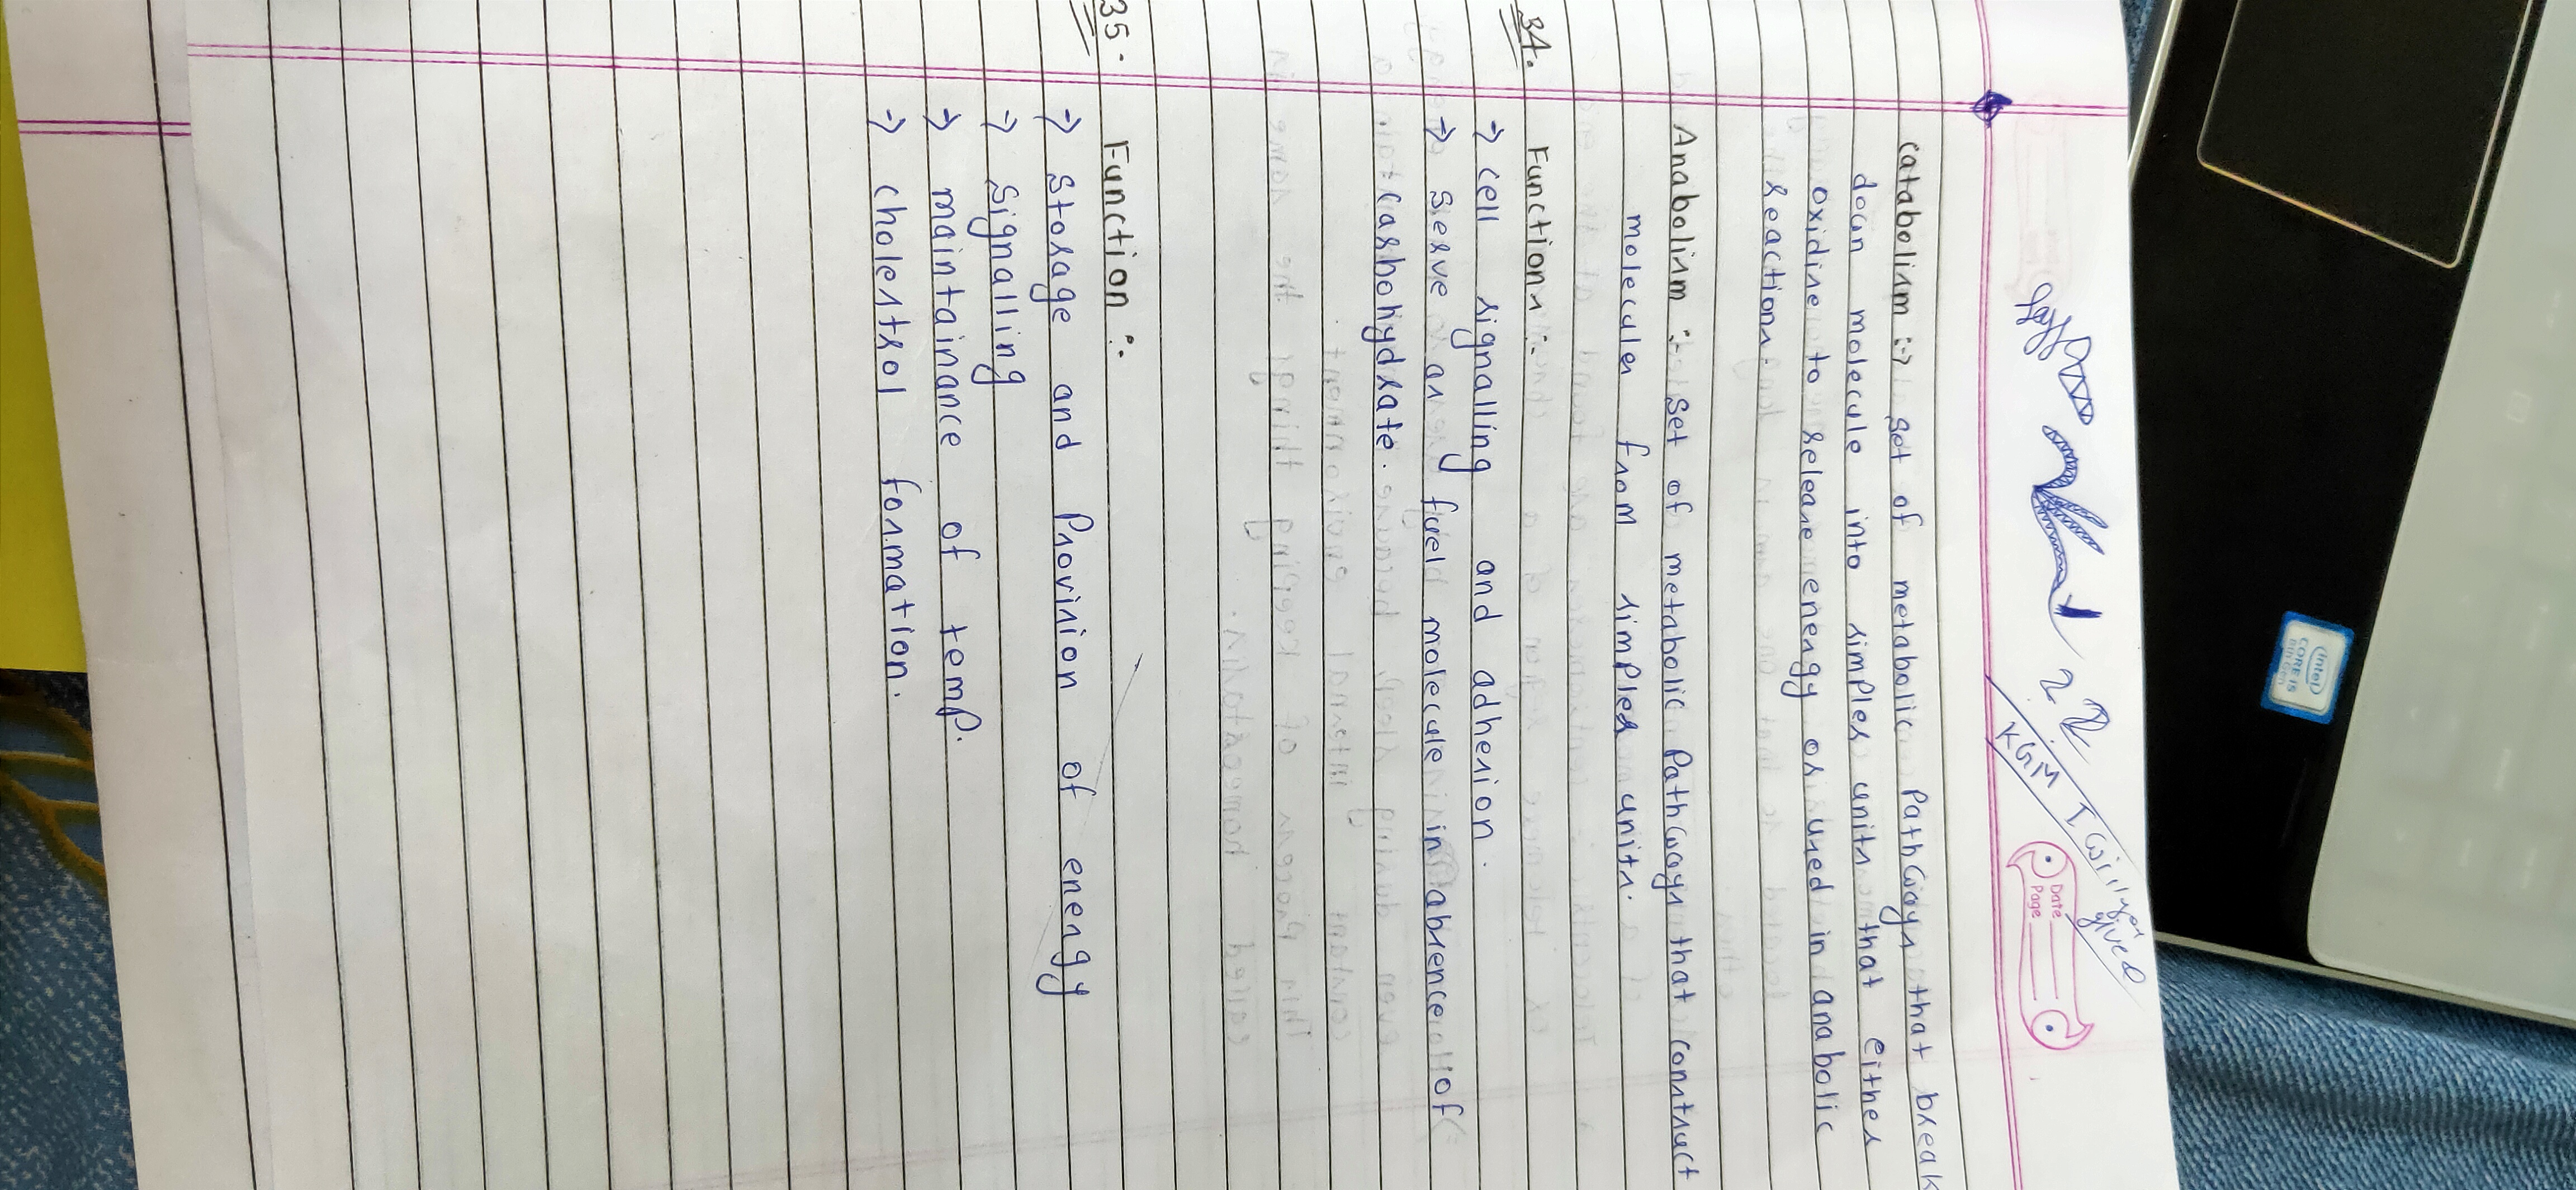 22
KGM I will you give
Date
Page
catabolism :→ set of metabolic Pathways that break
down molecule into simpler units that either
oxidise to release energy or used in anabolic
reactions.
Anabolism :- set of metabolic Pathways that construct
molecules from simpler units.
34. Functions :-
→ cell signalling and adhesion.
→ Serve as fuel molecule in absence of
carbohydrate.
35. Function :-
→ Storage and Provision of energy
→ Signalling
→ maintainance of temp.
→ cholestrol formation.
intel
CORE i5
8th Gen